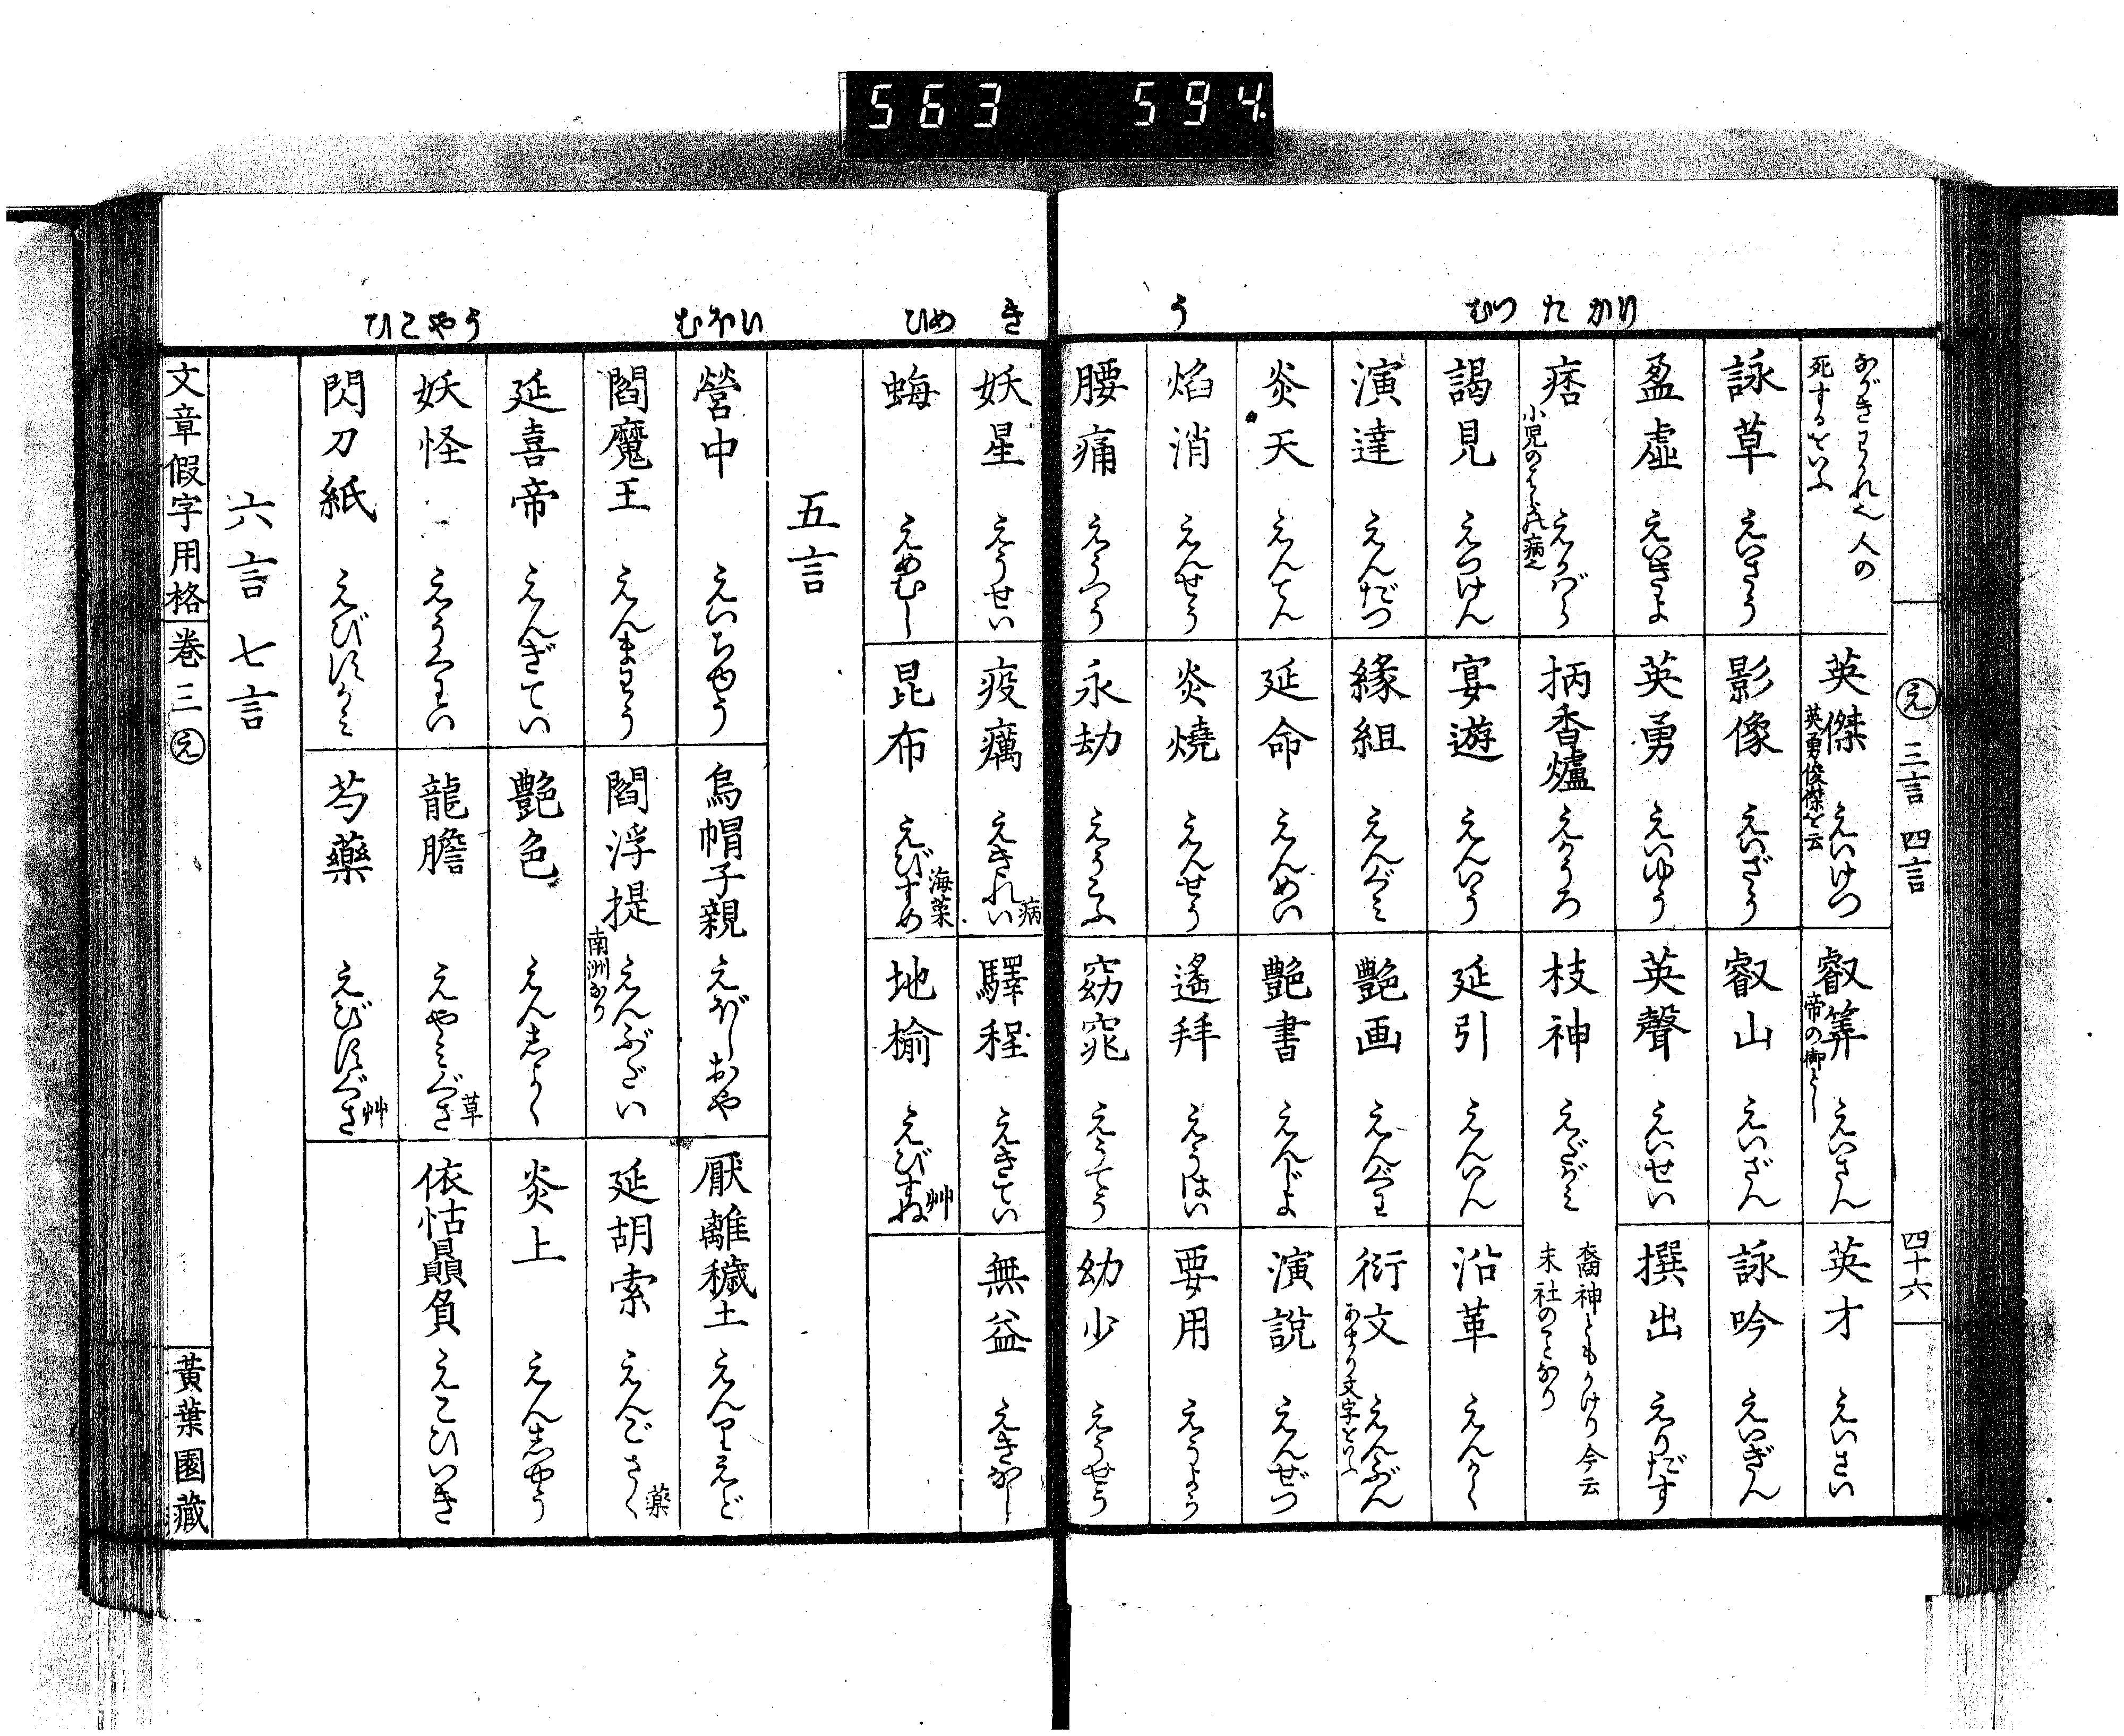 563 594
りか た つむ
う
え 三言 四言 四十六
死するをいふ
英傑 えいけつ 英勇俊傑を云
叡筭 えいさん 帝の御とし
英才 えいさい
詠草 えいさう
影像 えいざう
叡山 えいざん
詠吟 えいぎん
盈虚 えいきよ
英勇 えいゆう
英聲 えいせい
撰出 えりだす
痞
柄香爐 えかうろ
枝神 えだがミ
裔神ともかけり今云
末社のことなり
謁見 えつけん
宴遊 えんいう
延引 えんいん
沿革 えんかく
演達 えんだつ
緣組 えんぐミ
艶画 えんぐわ
衍文 えんぶん あまり文字をいふ
炎天 えんてん
延命 えんめい
艶書 えんじよ
演説 えんぜつ
焰消 えんせう
炎燒 えんせう
遙拜 えうはい
要用 えうよう
腰痛 えうつう
永劫 えうごふ
窈窕 えうてう
幼少 えうせう
き
めひ
いほむ
うやこひ
妖星 えうせい
疫癘 えきれい 病
驛程 えきてい
無益 えきなし
蛕 えめむし
昆布 えびすめ 海菜
地楡 えびすね 艸
五言
營中 えいちやう
烏帽子親 えぼしおや
厭離穢土 えんりゑど
閻魔王 えんまわう
閻浮提 えんぶだい 南洲なり
延胡索 えんごさく 薬
延喜帝 えんぎてい
艶色 えんしよく
炎上 えんしやう
妖怪 えうくわい
龍膽 えやミぐさ 草
依怙贔負 えこひいき
閃刀紙 えびすがミ
芍藥 えびすぐさ 艸
六言 七言
文章假字用格 巻三 え 黃葉園藏